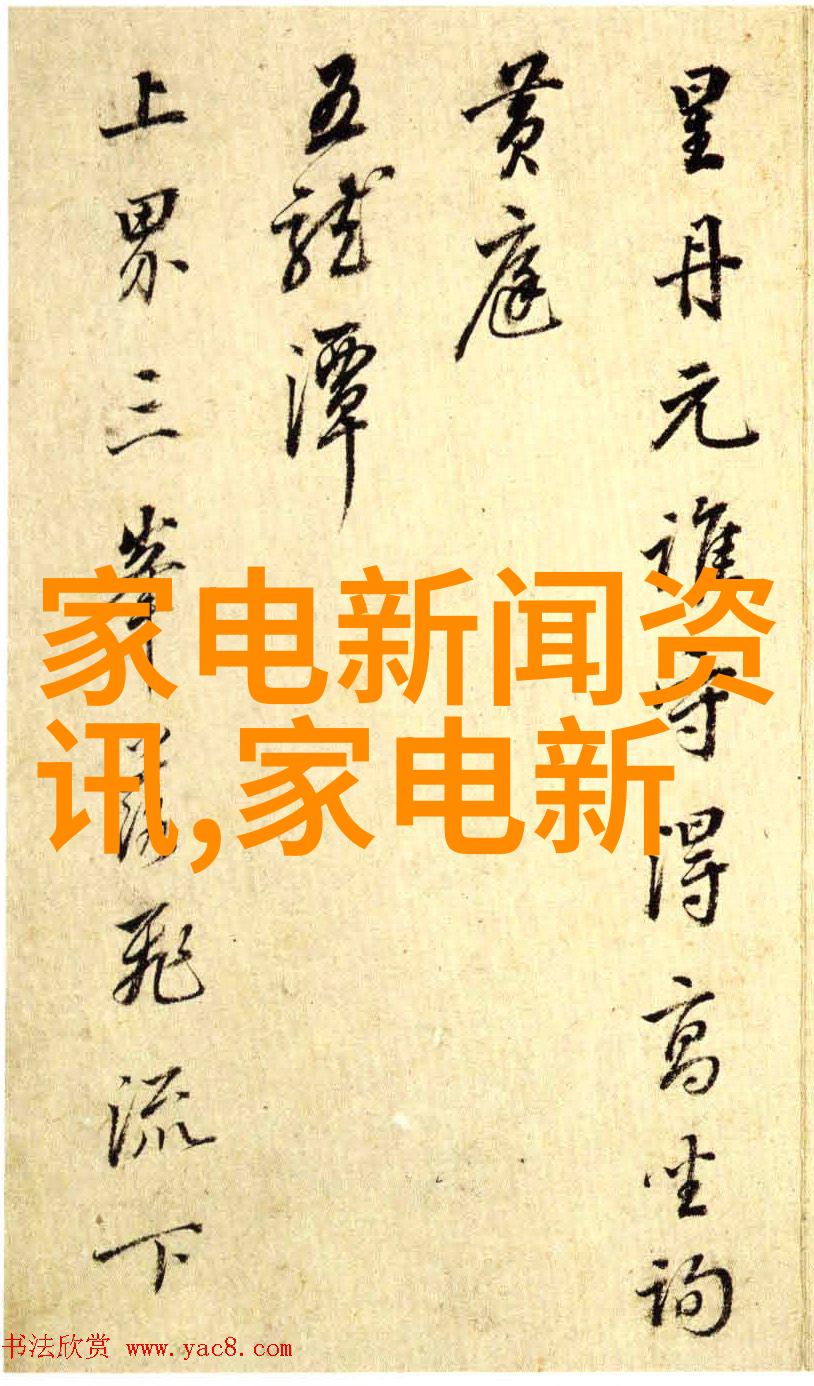 星丹元谁守得高坐询
黄庭
五龙潭
上界三峰落飛流下
家电新闻资
讯,家电新
书法欣赏 www.yac8.com